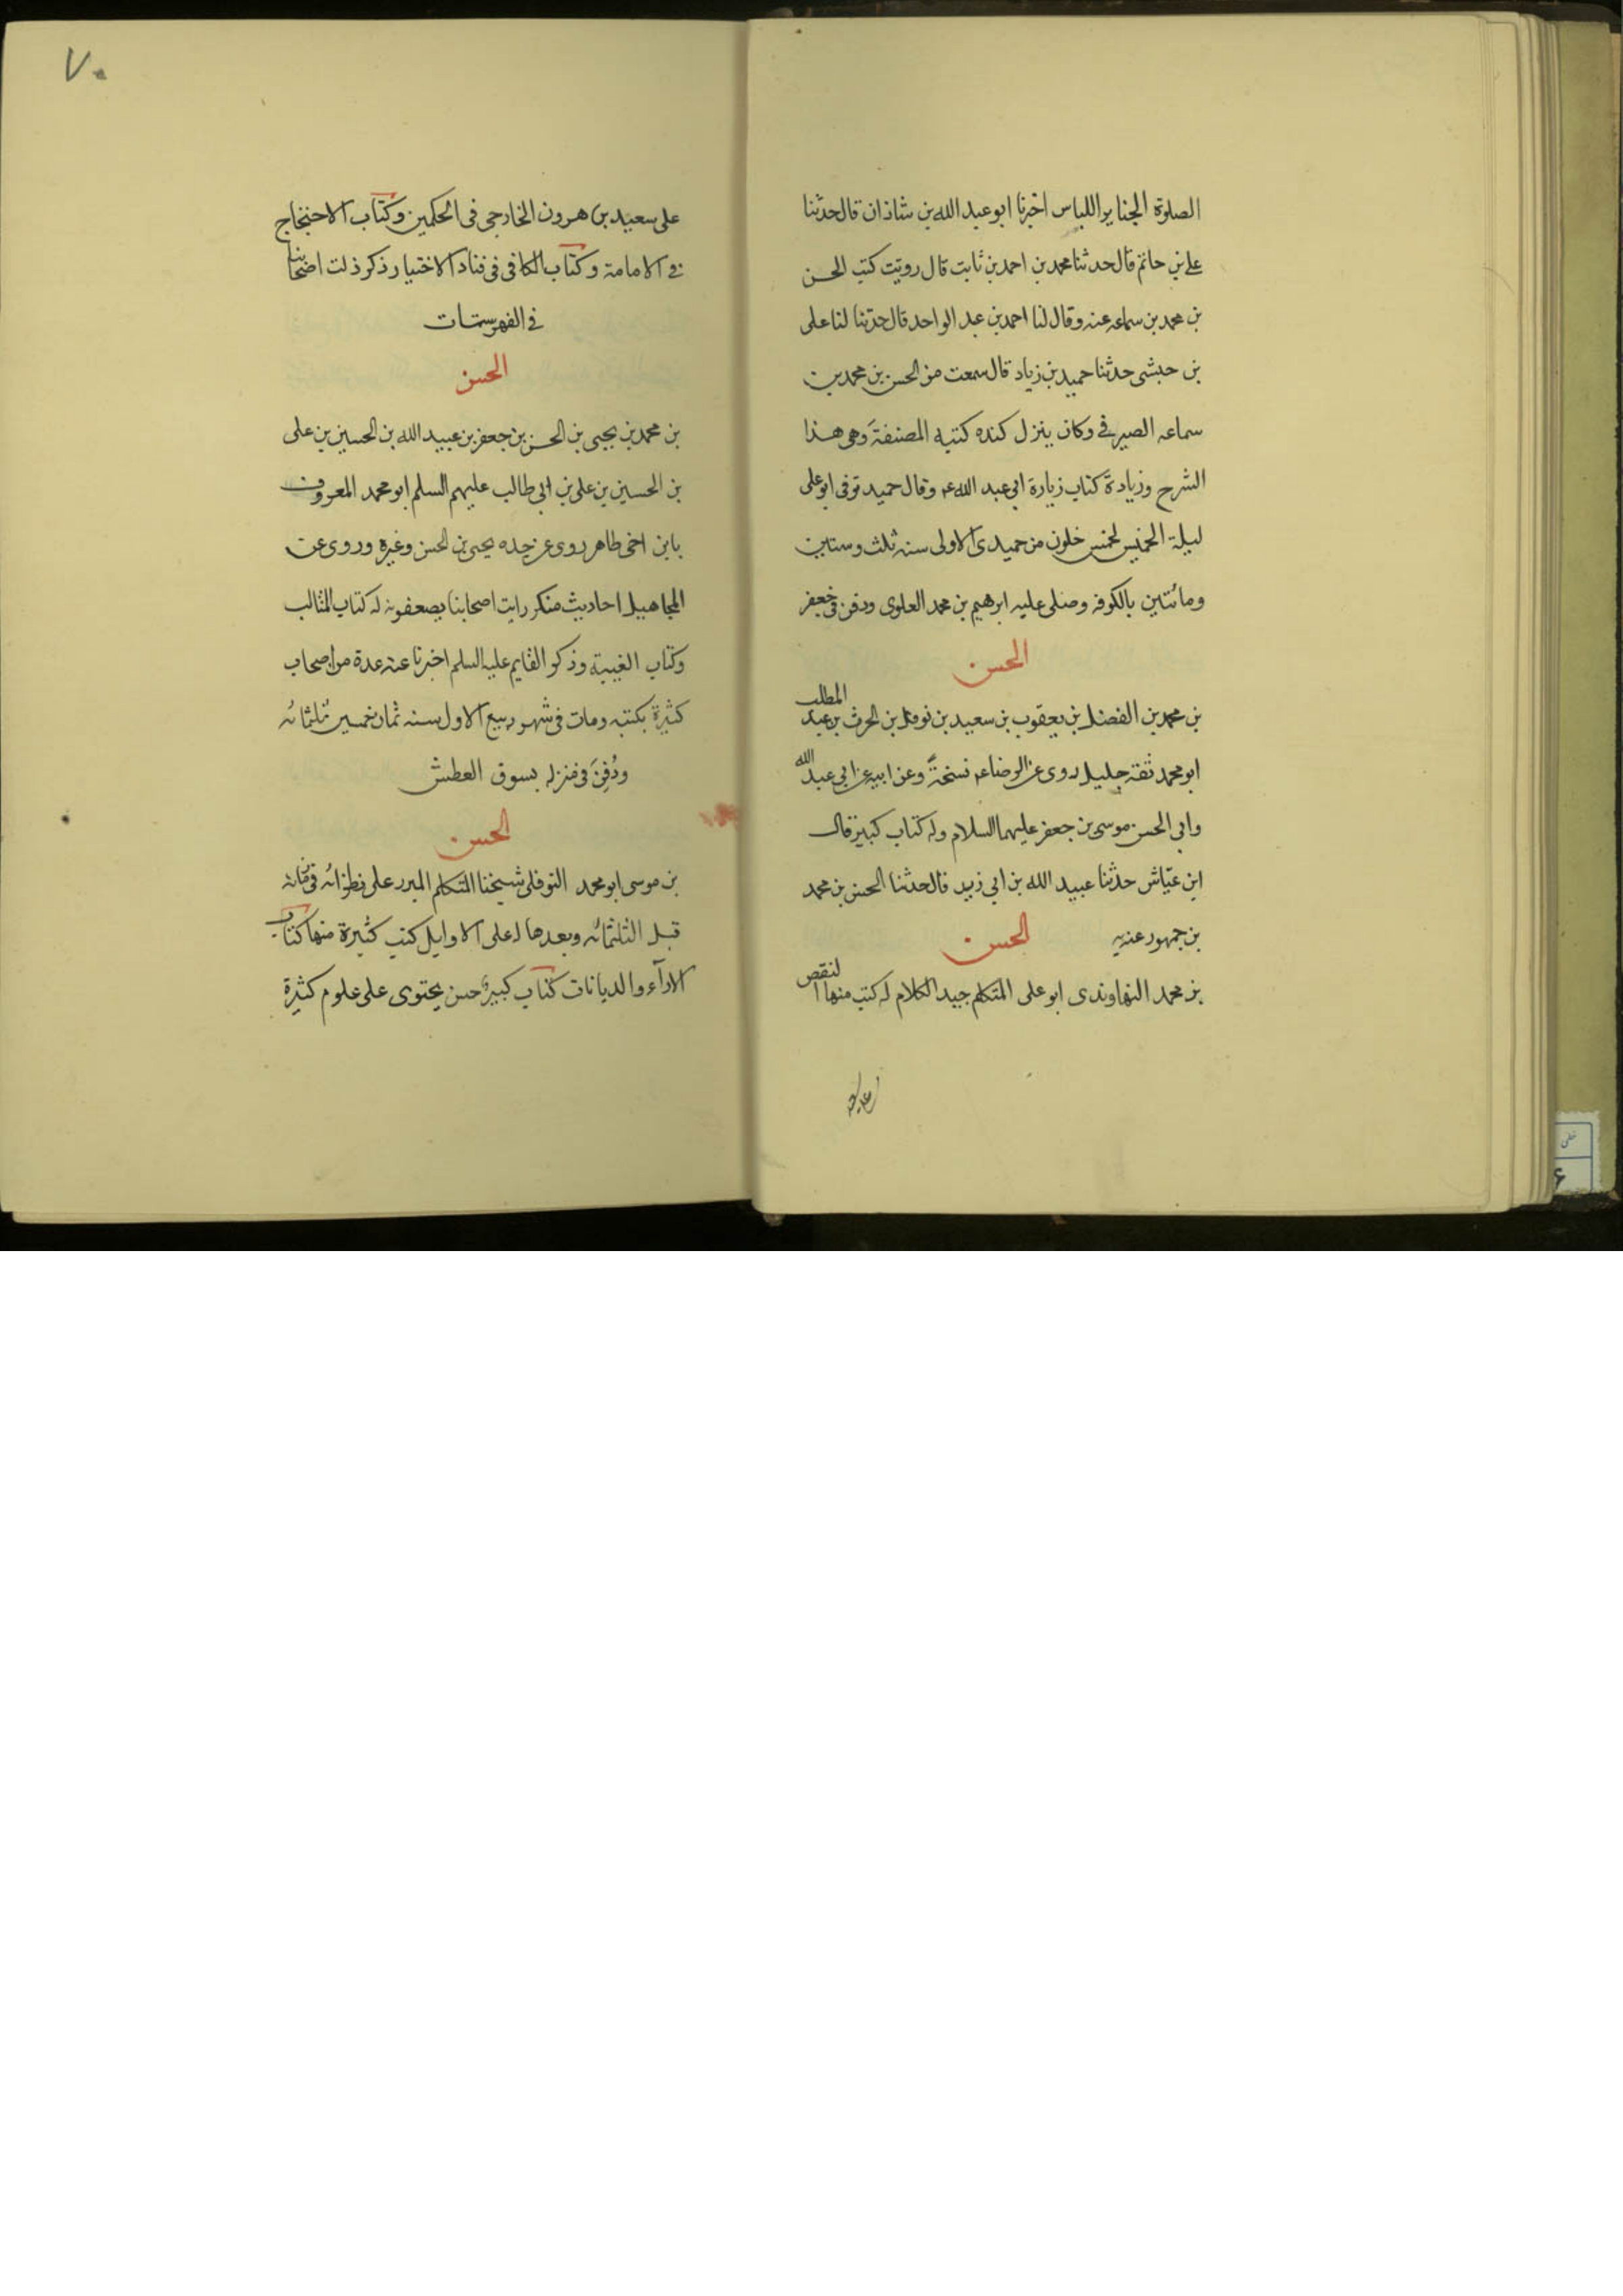 الصلوة الجنايز اللباس اخبرنا ابو عبد الله بن شاذان قال حدثنا
على بن حاتم قال حدثنا محمد بن احمد بن ثابت قال رويت كتب الحسن
بن محمد بن سماعه عنه وقال لنا احمد بن عبد الواحد قال حدثنا لنا على
بن حبشى حدثنا حميد بن زياد قال سمعت من الحسن بن محمد بن
سماعه الصيرفى وكان ينزل كنده كتبه المصنفة وهى هذا
الشرح وزيادة كتاب زيارة ابى عبد الله ع وقال حميد توفى ابو على
ليلة الخميس لخمس خلون من جميدى الاولى سنه ثلث وستين
ومائتين بالكوفه وصلى عليه ابرهيم بن محمد العلوى ودفن فى جعفر
الحسن
بن محمد بن الفضل بن يعقوب بن سعيد بن نوفل بن الحرث بن عبد المطلب
ابو محمد ثقة جليل روى عن الرضا ع نسخةً وعن ابيه عن ابى عبد الله
وابى الحسن موسى بن جعفر عليهما السلام وله كتاب كبير قال
ابن عياش حدثنا عبيد الله بن ابى زيد قال حدثنا الحسن بن محمد
بن جمهور عنه به
الحسن
بن محمد النهاوندى ابو على المتكلم جيد الكلام له كتب منها النقض
على سعيد بن هرون الخارجى فى الحكمين وكتاب الاحتجاج
فى الامامة وكتاب الكافى فى فساد الاختيار ذكر ذلك اصحابنا
فى الفهرستات
الحسن
بن محمد بن يحيى بن الحسن بن جعفر بن عبيد الله بن الحسين بن على
بن الحسين بن على بن ابى طالب عليهم السلم ابو محمد المعروف
بابن اخى طاهر روى عن جده يحيى بن الحسن وغيره وروى عن
المجاهيل احاديث منكر رايت اصحابنا يضعفونه له كتاب المثالب
وكتاب الغيبة وذكر القايم عليه السلم اخبرنا عنه عدة من اصحاب
كثيرة بكتبه ومات فى شهر ربيع الاول سنه ثمان خمسين ثلثمائه
ودُفِنَ فى منزله بسوق العطش
الحسن
بن موسى ابو محمد النوفلى شيخنا المتكلم المبرز على نظرائه فى زمانه
قبل الثلثمائه وبعدها له على الاوايل كتب كثيرة منها كتاب
الاراء والديانات كتاب كبير حسن يحتوى على علوم كثيرة
٧٠